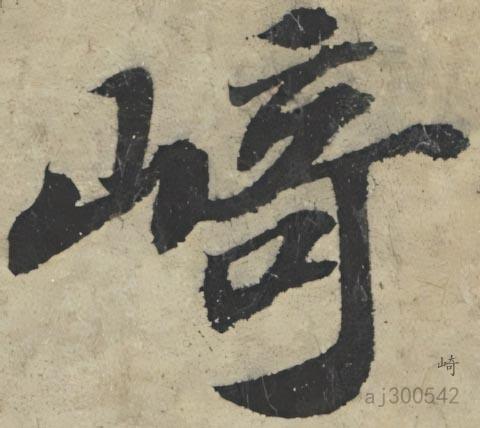 崎
崎
aj300542